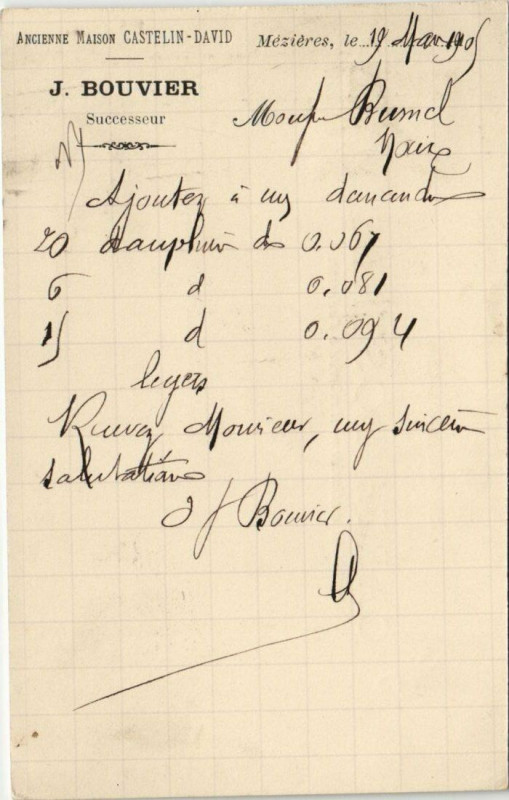 ANCIENNE MAISON CASTELIN-DAVID
Mézières, le 19 Mars 1905
J. BOUVIER
Successeur
Monsieur
Ajoutez à ma demande
20 dauphins de 0.067
6 d 0.081
15 d 0.094
legers
Recevez Monsieur, mes sincères
salutations
J Bouvier.